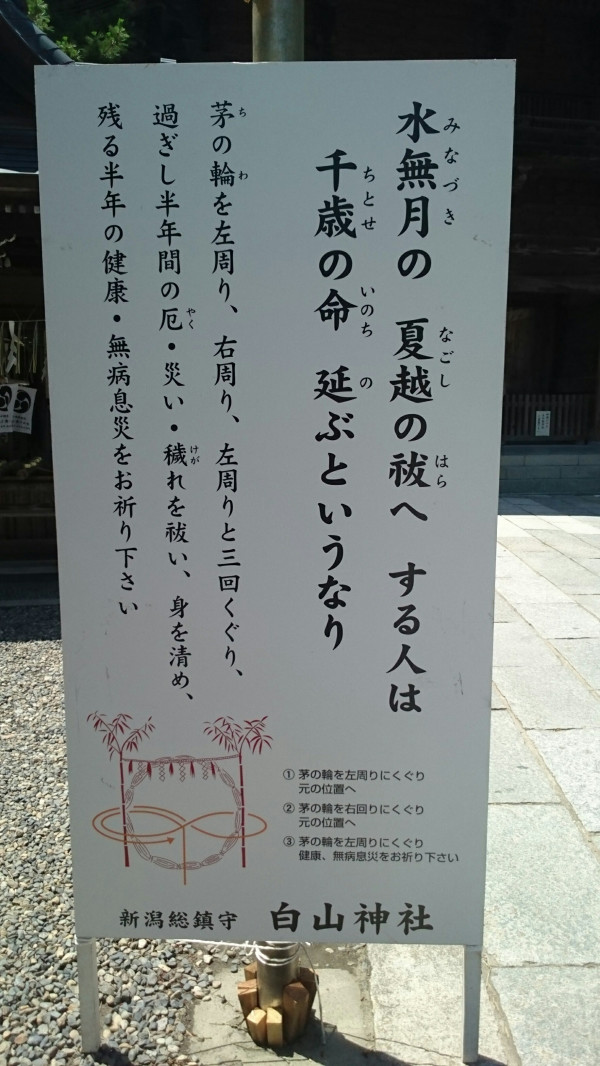 水無月の 夏越の祓へ する人は
みなづき なごし はら
千歳の命 延ぶというなり
ちとせ いのち の
茅の輪を左周り、右周り、左周りと三回くぐり、
ち わ
過ぎし半年間の厄・災い・穢れを祓い、身を清め、
やく けが
残る半年の健康・無病息災をお祈り下さい
① 茅の輪を左周りにくぐり
元の位置へ
② 茅の輪を右回りにくぐり
元の位置へ
③ 茅の輪を左周りにくぐり
健康、無病息災をお祈り下さい
新潟総鎮守 白山神社